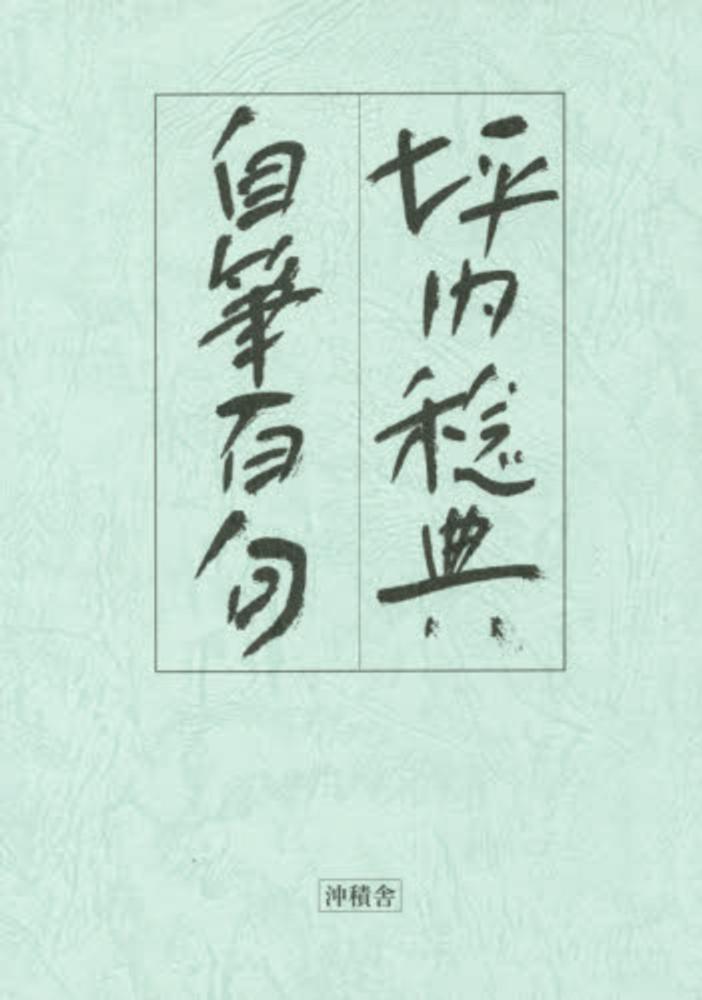 坪内稔典
自筆百句
沖積舎